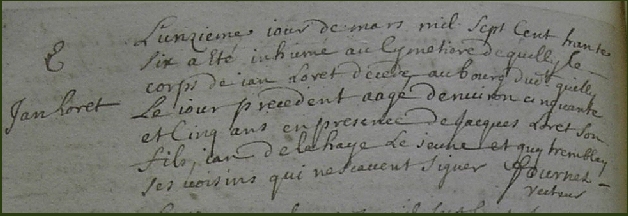 E
Jan Loret
L'unzieme jour de mars mil sept cent trante
six a été inhumé au cymetiere de quilly le
corps de ian Loret decedé au bourg dudt quilly
Le iour precedent aagé denviron cinquante
et cinq ans en presence de Jacques Loret son
fils, ian de la haye Le jeune et guy tremblay
ses voisins qui ne scavent signer Fournet
recteur